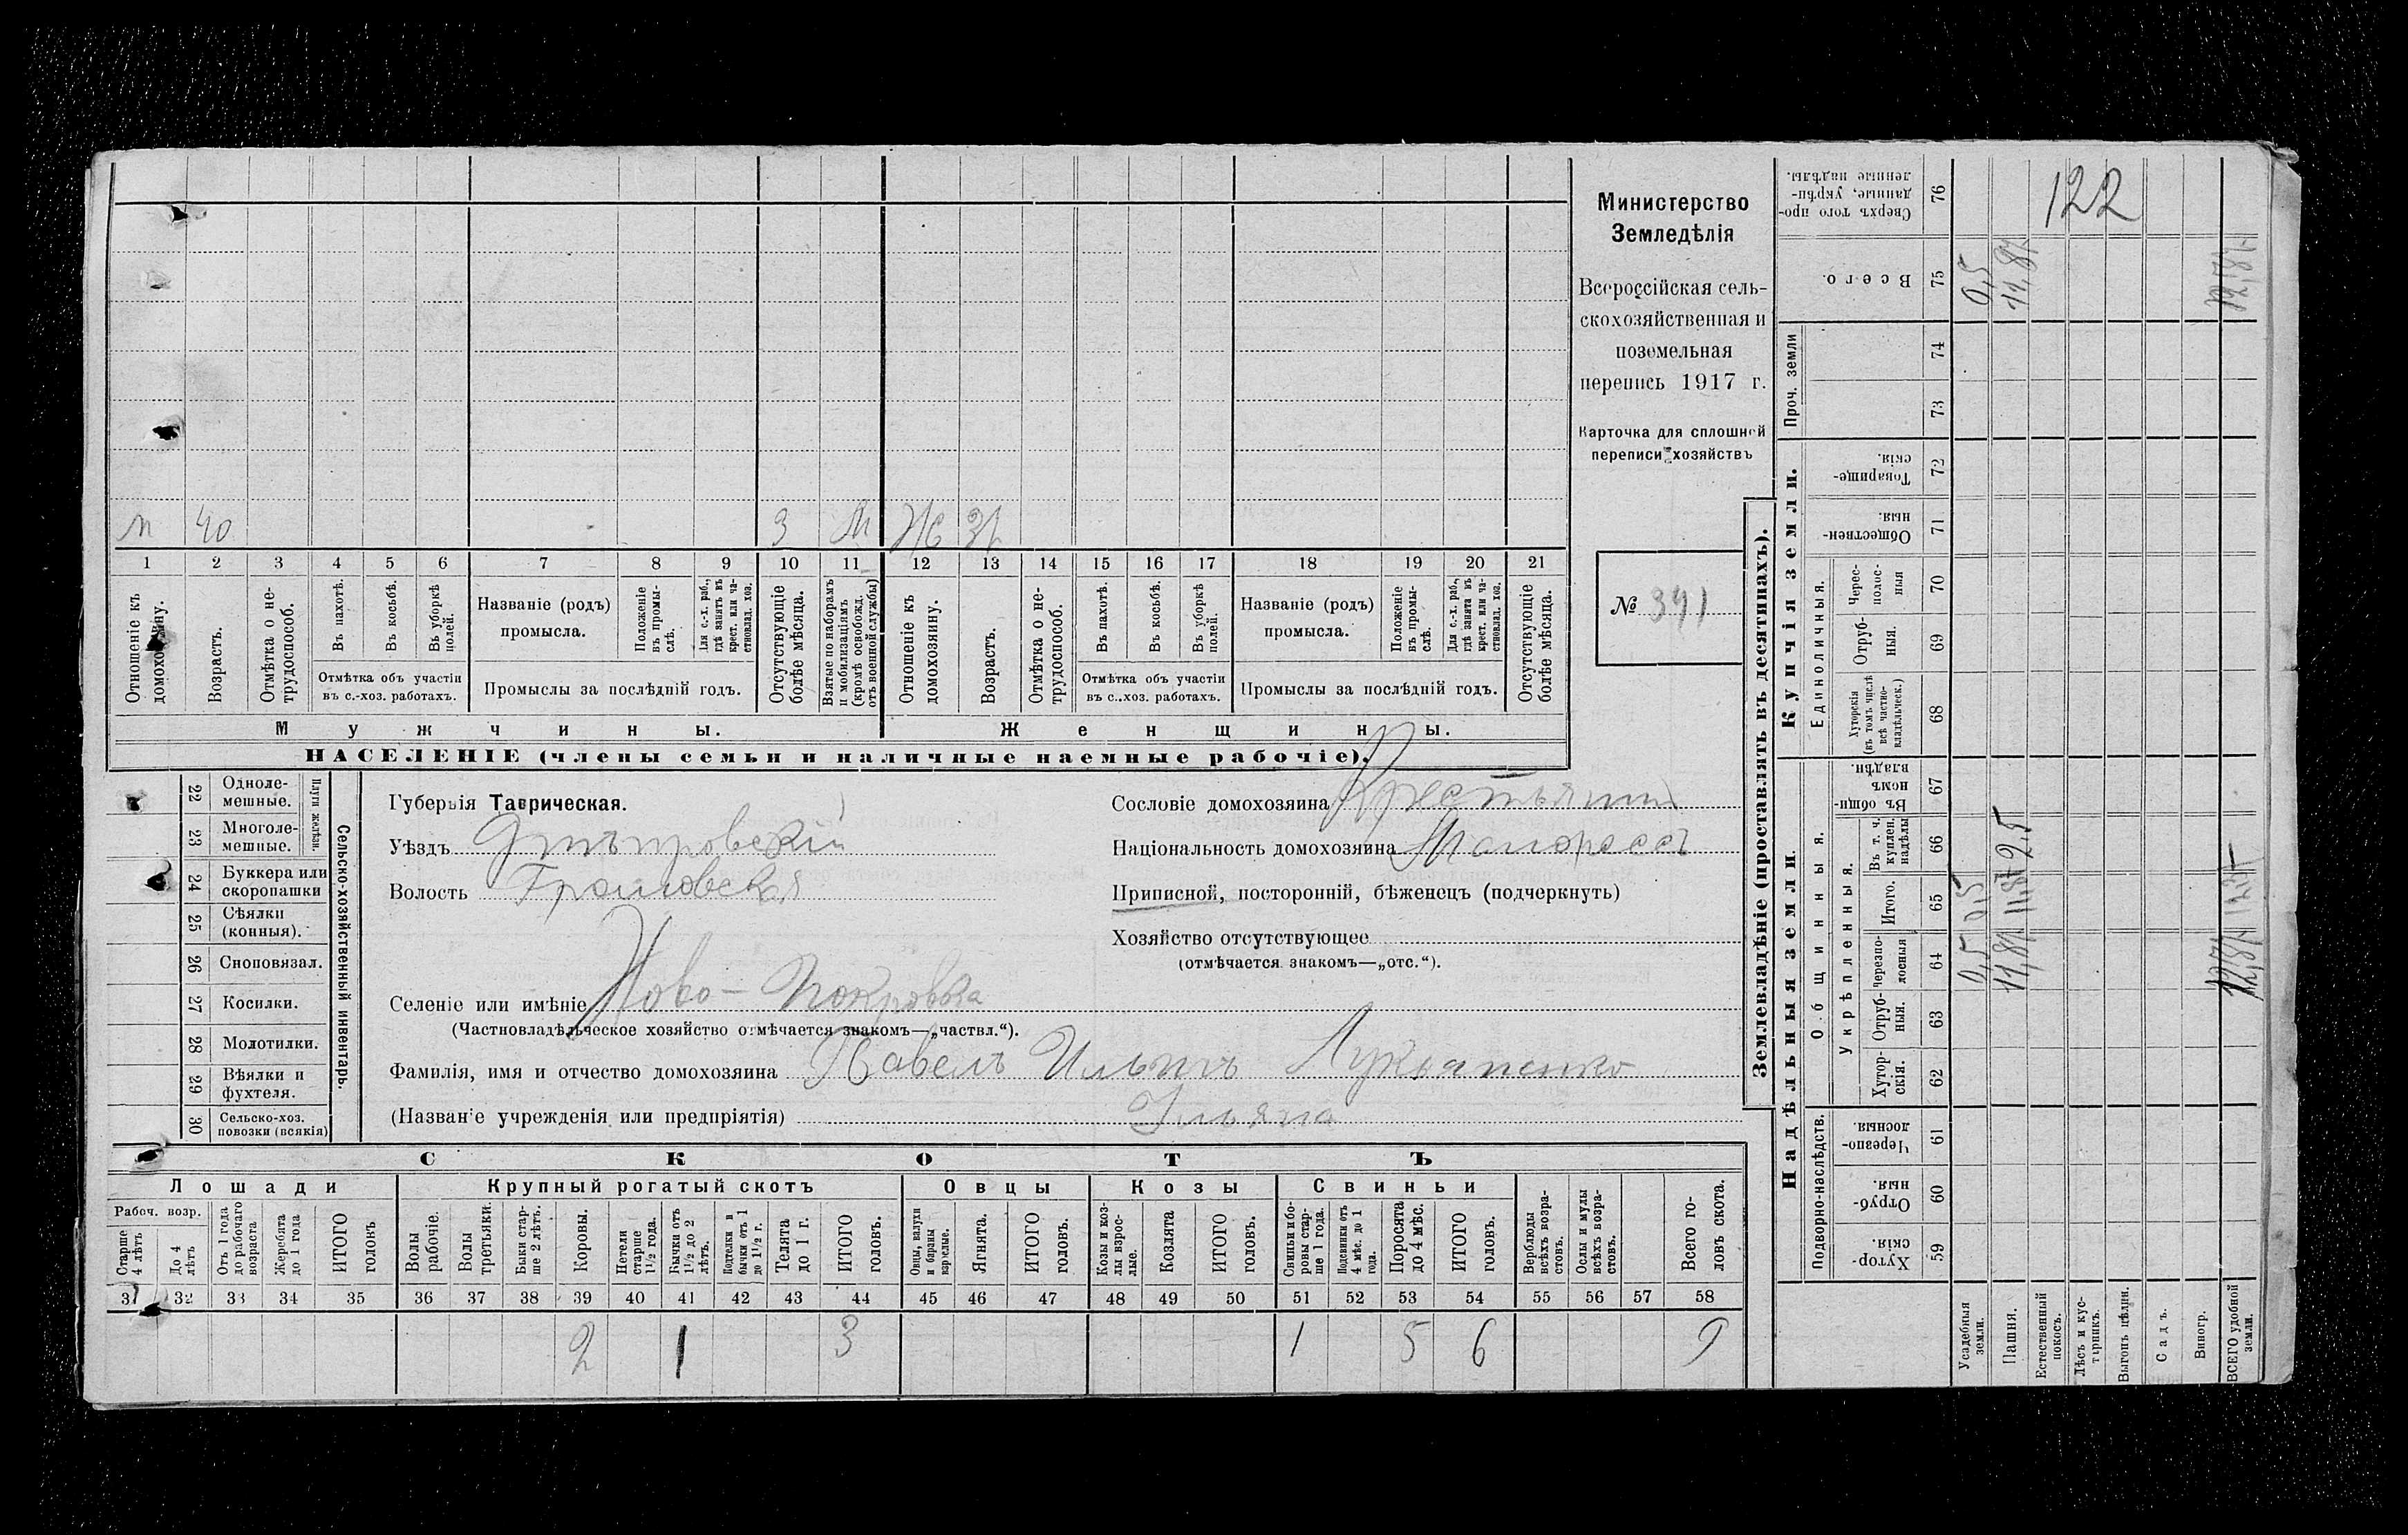 Министерство
Земледѣлія
Всероссійская сель-
скохозяйственная и
поземельная
перепись 1917 г.
Карточка для сплошной
переписи хозяйствъ
№ 391
м 40 3 М Ж
1 2 3 4 5 6 7 8 9 10 11 12 13 14 15 16 17 18 19 20 21
Отношеніе къ домохозяину.
Возрастъ.
Отмѣтка о не-трудоспособ.
Въ пахотѣ.
Въ косьбѣ.
Въ уборкѣ полей.
Отмѣтка объ участіи
въ с.-хоз. работахъ.
Названіе (родъ)
промысла.
Положеніе въ промы-слѣ.
Для с.-х. раб., гдѣ занятъ въ крест. или ча-стновлад. хоз.
Промыслы за послѣдній годъ.
Отсутствующіе болѣе мѣсяца.
Взятые по наборамъ и мобилизаціямъ (кромѣ освобожд. отъ военной службы)
Отношеніе къ домохозяину.
Возрастъ.
Отмѣтка о не-трудоспособ.
Въ пахотѣ.
Въ косьбѣ.
Въ уборкѣ полей.
Отмѣтка объ участіи
въ с.-хоз. работахъ.
Названіе (родъ)
промысла.
Положеніе въ промы-слѣ.
Для с.-х. раб., гдѣ занята въ крест. или ча-стновлад. хоз.
Промыслы за послѣдній годъ.
Отсутствующіе болѣе мѣсяца.
Мужчины.
Женщины.
НАСЕЛЕНІЕ (члены семьи и наличные наемные рабочіе).
22 Одноле-мешные.
23 Многоле-мешные.
Плуги желѣзн.
24 Буккера или скоропашки
25 Сѣялки (конныя).
26 Сноповязал.
27 Косилки.
28 Молотилки.
29 Вѣялки и фухтеля.
30 Сельско-хоз. повозки (всякія)
Сельско-хозяйственный инвентарь.
Губернія Таврическая.
Уѣздъ Днѣпровскій
Волость Громовская
Селеніе или имѣніе Ново-Покровка
(Частновладѣльческое хозяйство отмѣчается знакомъ—„частвл.“).
Фамилія, имя и отчество домохозяина Павелъ Ильичъ Лукьяненко
(Названіе учрежденія или предпріятія) Ильяна
Сословіе домохозяина Крестьянин
Національность домохозяина Малороссъ
Приписной, посторонній, бѣженецъ (подчеркнуть)
Хозяйство отсутствующее
(отмѣчается знакомъ—„отс.“).
СКОТЪ
Лошади
Крупный рогатый скотъ
Овцы
Козы
Свиньи
Рабоч. возр.
Старше 4 лѣтъ
До 4 лѣтъ
Отъ 1 года до рабочаго возраста
Жеребята до 1 года
ИТОГО головъ
Волы рабочіе.
Волы третьяки.
Быки стар-ше 2 лѣтъ.
Коровы.
Нетели старше 1½ года.
Бычки отъ 1½ до 2 лѣтъ.
Подтелки и бычки отъ 1 до 1½ г.
Телята до 1 г.
ИТОГО головъ.
Овцы, валухи и бараны взрослые.
Ягнята.
ИТОГО головъ.
Козы и коз-лы взрос-лые.
Козлята
ИТОГО головъ.
Свиньи и бо-ровы стар-ше 1 года.
Подсвинки отъ 4 мѣс. до 1 года.
Поросята до 4 мѣс.
ИТОГО головъ.
Верблюды всѣхъ возра-стовъ.
Ослы и мулы всѣхъ возра-стовъ.
Всего го-ловъ скота.
31 32 33 34 35 36 37 38 39 40 41 42 43 44 45 46 47 48 49 50 51 52 53 54 55 56 57 58
2 1 3 1 5 6 9
Землевладѣніе (проставлять въ десятинахъ).
Надѣльныя земли.
Купчія земли.
Проч. земли
Подворно-наслѣдств.
Общинныя.
Укрѣпленныя.
Единоличныя.
Хутор-скія. 59
Отруб-ныя. 60
Черезпо-лосныя. 61
Хутор-скія. 62
Отруб-ныя. 63
Черезпо-лосныя 64
Итого. 65
Въ т. ч. куплен. надѣлы 66
Въ общи-номъ владѣн. 67
Хуторскія (въ томъ числѣ всѣ частно-владѣльческ.) 68
Отруб-ныя. 69
Черес-полос-ныя 70
Обществен-ныя. 71
Товарище-скія. 72
73
74
Всего. 75
Сверхъ того про-данные, укрѣп-ленные надѣлы. 76
Усадебныя земли. 0,5 0,5 0,5
Пашня. 11,87 11,87 2,5 11,87
Естественный покосъ.
Лѣсъ и кус-тарникъ.
Выгонъ цѣлин.
Садъ.
Виногр.
ВСЕГО удобной земли.
122